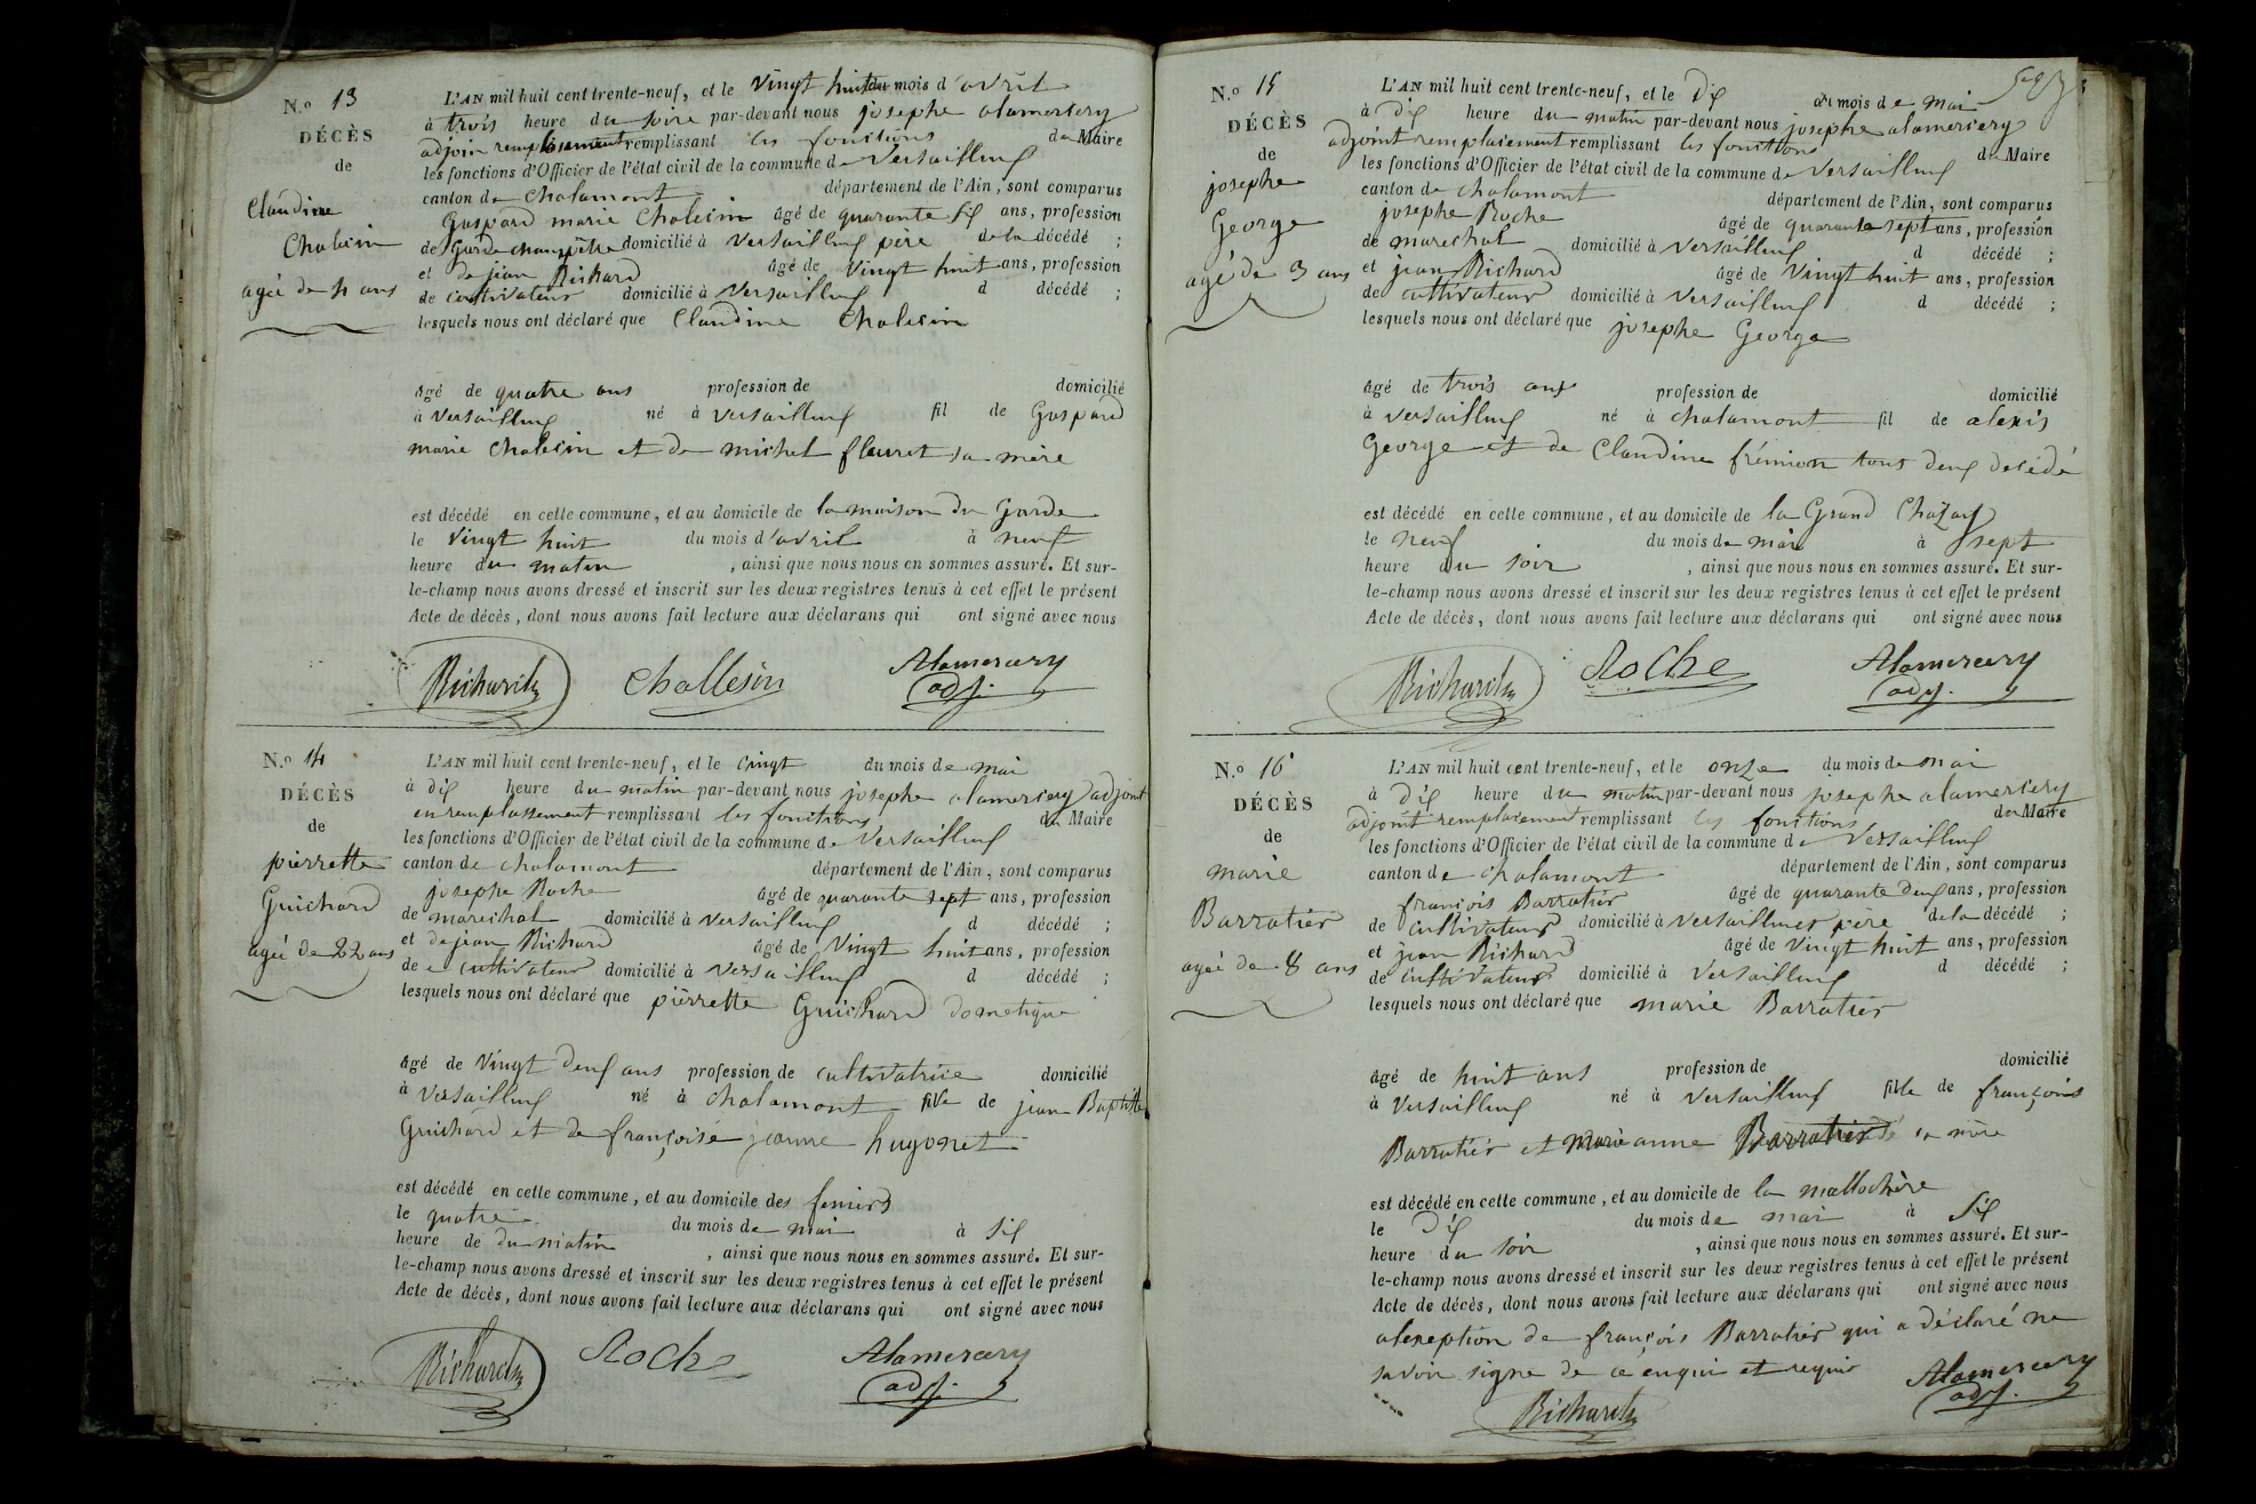 N.o 13
DÉCÈS
de
Claudine
Chalesin
agée de 4 ans
L'AN mil huit cent trente-neuf, et le vingt huit du mois d'avril
à trois heure du soire par-devant nous josephe alamersery
adjoin remplissant les fonctions du Maire
les fonctions d'Officier de l'état civil de la commune de Versailleux
canton de chalamont département de l'Ain, sont comparus
Gaspard marie Chalesin âgé de quarante six ans, profession
de Garde champêtre domicilié à Versailleux père de la décédé ;
et de jean Richard âgé de Vingt huit ans, profession
de cultivateur domicilié à Versailleux d décédé ;
lesquels nous ont déclaré que Claudine Chalesin
âgé de quatre ans profession de domicilié
à Versailleux né à Versailleux fil de Gaspard
marie chalesin et de michel fleuret sa mère
est décédé en cette commune, et au domicile de la maison du Garde
le Vingt huit du mois d'avril à neuf
heure du matin , ainsi que nous nous en sommes assuré. Et sur-
le-champ nous avons dressé et inscrit sur les deux registres tenus à cet effet le présent
Acte de décès, dont nous avons fait lecture aux déclarans qui ont signé avec nous
Richard Challesin Alamercery
adj.
N.o 14
DÉCÈS
de
pierrette
Guichard
agée de 22 ans
L'AN mil huit cent trente-neuf, et le cinqt du mois de mai
à dix heure du matin par-devant nous josephe alamersery adjoint
en remplassement remplissant les fonctions du Maire
les fonctions d'Officier de l'état civil de la commune de Versailleux
canton de chalamont département de l'Ain, sont comparus
josephe Roche âgé de quarante sept ans, profession
de marechal domicilié à Versailleux d décédé ;
et de jean Richard âgé de Vingt huit ans, profession
de cultivateur domicilié à Versailleux d décédé ;
lesquels nous ont déclaré que pierrette Guichard dometique
âgé de Vingt deux ans profession de cultivatrice domicilié
à Versailleux né à chalamont fille de jean Baptiste
Guichard et de françoise jeanne hugonet
est décédé en cette commune, et au domicile des feniers
le quatre du mois de mai à six
heure de du matin , ainsi que nous nous en sommes assuré. Et sur-
le-champ nous avons dressé et inscrit sur les deux registres tenus à cet effet le présent
Acte de décès, dont nous avons fait lecture aux déclarans qui ont signé avec nous
Richard Roche Alamercery
adj.
N.o 15
DÉCÈS
de
josephe
George
agé de 3 ans
L'AN mil huit cent trente-neuf, et le dix du mois de mai
à dix heure du matin par-devant nous josephe alamersery
adjoint remplacement remplissant les fonctions du Maire
les fonctions d'Officier de l'état civil de la commune de Versailleux
canton de chalamont département de l'Ain, sont comparus
josephe Roche âgé de quarante sept ans, profession
de marechal domicilié à Versailleux d décédé ;
et jean Richard âgé de Vingt huit ans, profession
de cultivateur domicilié à Versailleux d décédé ;
lesquels nous ont déclaré que josephe George
âgé de trois ans profession de domicilié
à Versailleux né à chalamont fil de alexis
George et de Claudine frémion tous deux desédé
est décédé en cette commune, et au domicile de la Grand Chazay
le neuf du mois de mai à sept
heure du soir , ainsi que nous nous en sommes assuré. Et sur-
le-champ nous avons dressé et inscrit sur les deux registres tenus à cet effet le présent
Acte de décès, dont nous avons fait lecture aux déclarans qui ont signé avec nous
Richard Roche Alamercery
adj.
N.o 16
DÉCÈS
de
marie
Barratier
agée de 8 ans
L'AN mil huit cent trente-neuf, et le onze du mois de mai
à dix heure du matin par-devant nous josephe alamersery
adjoint remplacement remplissant les fonctions du Maire
les fonctions d'Officier de l'état civil de la commune de Versailleux
canton de chalamont département de l'Ain, sont comparus
françois Barratier âgé de quarante deux ans, profession
de cultivateur domicilié à Versailleux père de la décédé ;
et jean Richard âgé de Vingt huit ans, profession
de cultivateur domicilié à Versailleux d décédé ;
lesquels nous ont déclaré que marie Barratier
âgé de huit ans profession de domicilié
à Versailleux né à Versailleux fille de françois
Barratier et marie anne Barratier sa mère
est décédé en cette commune, et au domicile de la mallochère
le dix du mois de mai à six
heure du soir , ainsi que nous nous en sommes assuré. Et sur-
le-champ nous avons dressé et inscrit sur les deux registres tenus à cet effet le présent
Acte de décès, dont nous avons fait lecture aux déclarans qui ont signé avec nous
alexeption de françois Barratier qui a déclaré ne
savoir signe de ce enquis et requis Alamercery
adj.
Richard